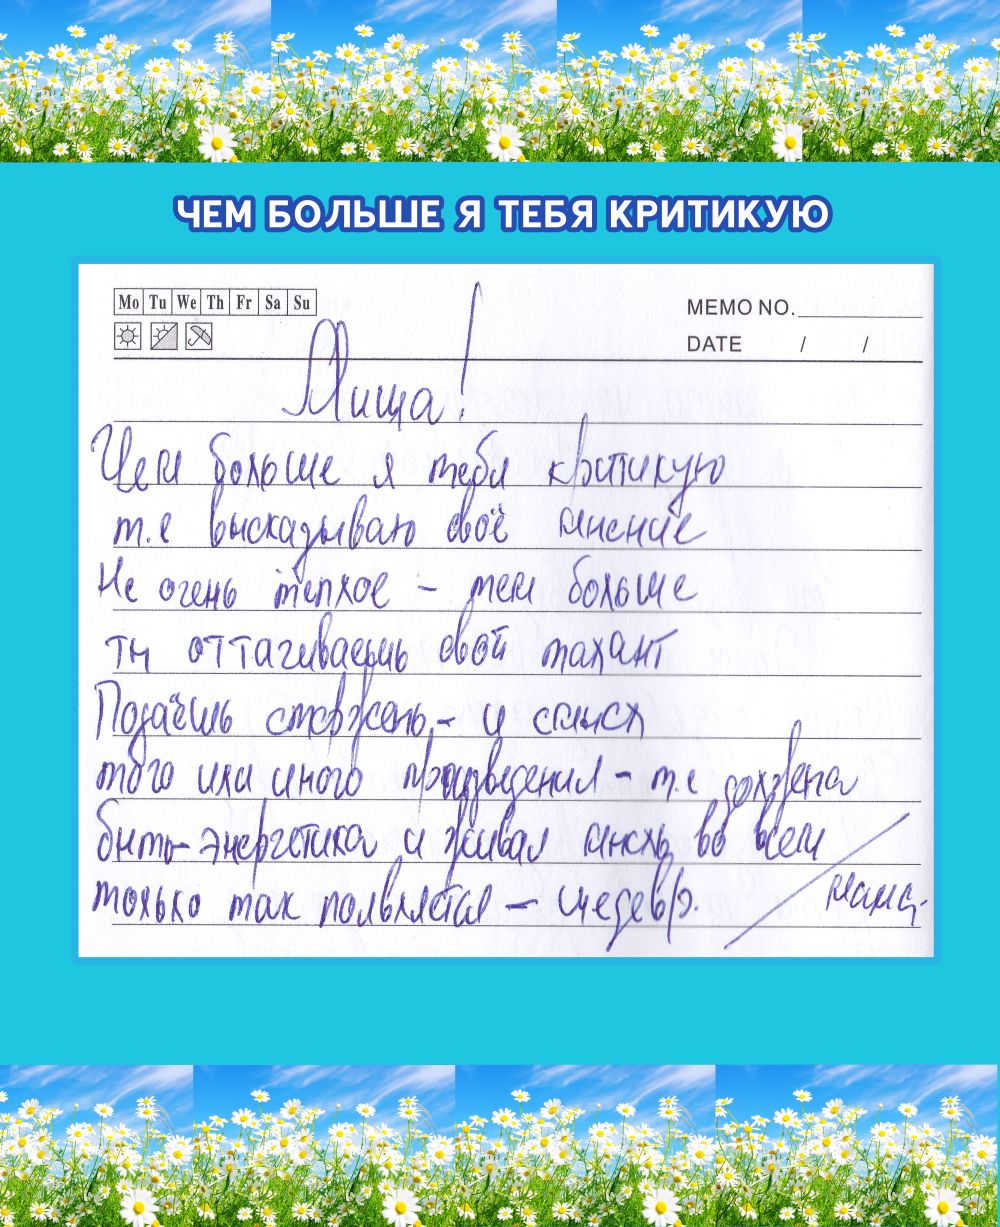 ЧЕМ БОЛЬШЕ Я ТЕБЯ КРИТИКУЮ
Mo Tu We Th Fr Sa Su
MEMO NO.
DATE / /
Миша!
Чем больше я тебя критикую
т.е высказываю своё мнение
Не очень тёплое – тем больше
ты оттагиваешь свой талант
Подаёшь стержень, – и смысл
того или иного произведения – т.е должена
быть – энергетика и живая мысль во всём
только так появляется – шедевр.
мама.